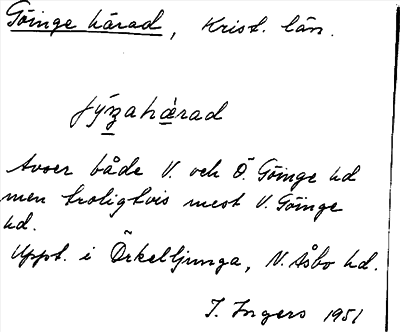 Göinge härad, Krist. län.
jýŋahǽrad
Avser både V. och Ö. Göinge hd
men troligtvis mest V. Göinge
hd.
Uppt. i Örkelljunga, N. Åsbo hd.
I. Ingers 1951